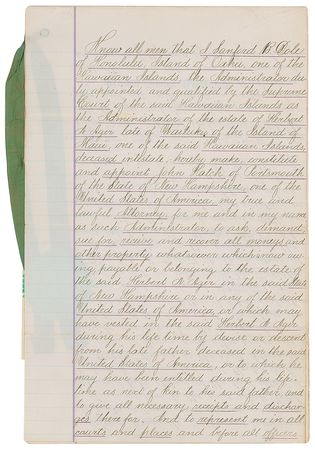 Know all men that I Sanford B. Dole
of Honolulu, Island of Oahu, one of the
Hawaiian Islands, the Administrator du-
ly appointed and qualified by the Supreme
Court of the said Hawaiian Islands as
the Administrator of the estate of Herbert
A Ayer late of Wailuku, of the Island of
Maui, one of the said Hawaiian Islands,
deceased intestate, hereby make, constitute
and appoint John Hatch of Portsmouth
of the State of New Hampshire, one of the
United States of America, my true and
lawful Attorney, for me and in my name
as such Administrator, to ask, demand,
sue for, receive and recover all moneys and
other property whatsoever which is now ow-
ing, payable or belonging to the estate of
the said Herbert A Ayer in the said State
of New Hampshire or in any of the said
United States of America, or which may
have vested in the said Herbert A Ayer
during his life time by devise or descent
from his late father deceased in the said
United States of America, or to which he
may have been entitled during his life-
time as next of kin to his said father, and
to give all necessary, receipts and dischar-
ges there for. And to represent me in all
courts and places and before all officers